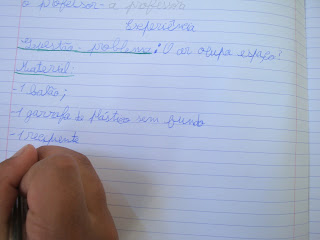 o professor - a professora
Experiência
Questão - problema: O ar ocupa espaço?
Material:
- 1 balão;
- 1 garrafa de plástico sem fundo
- 1 recipiente